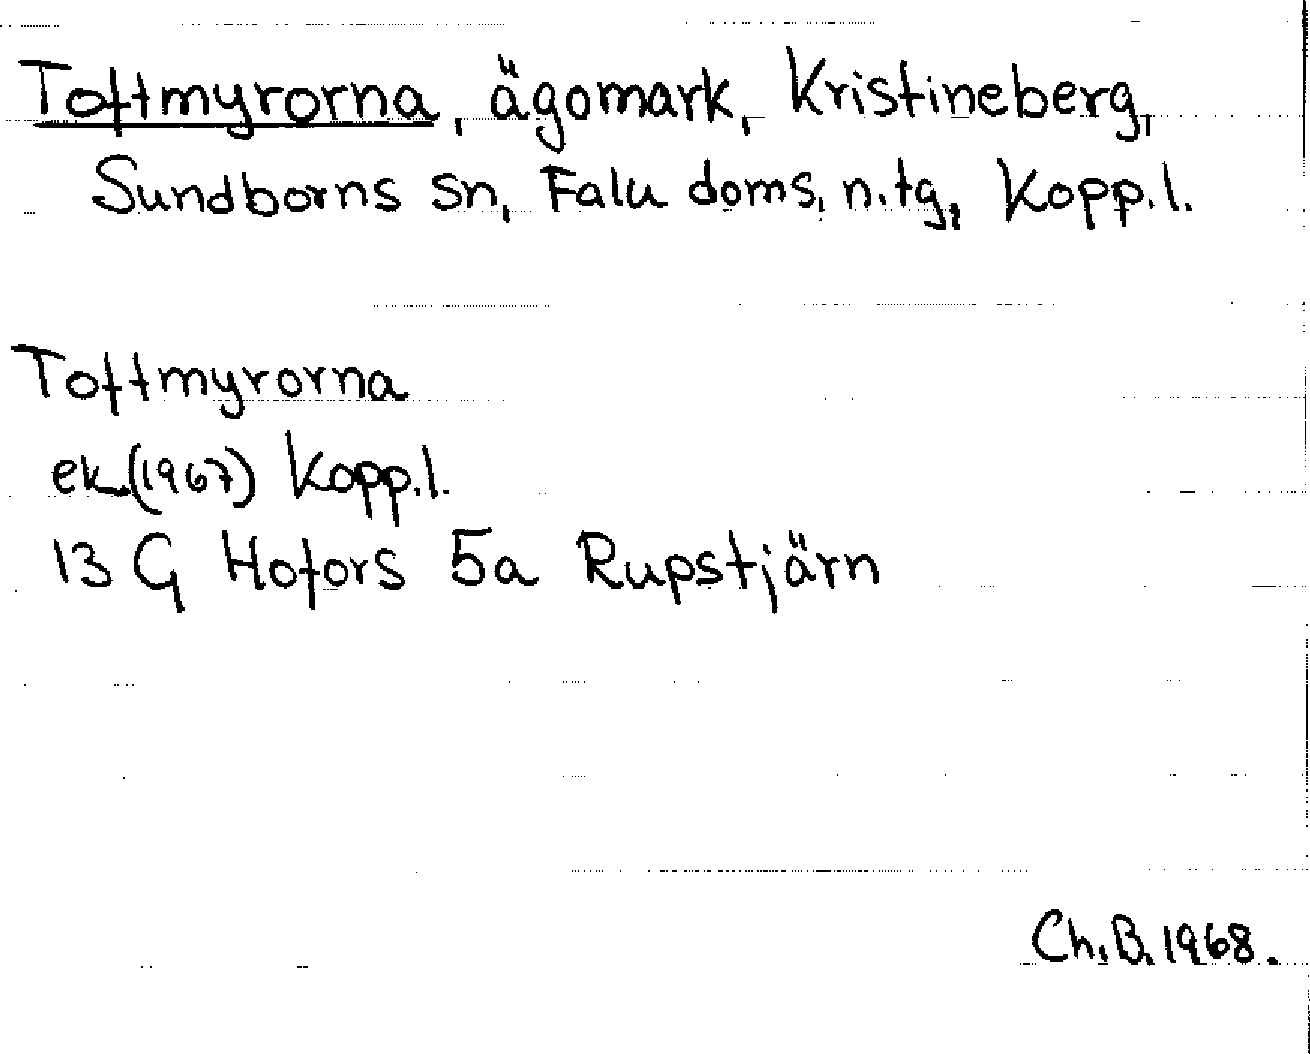 Toftmyrorna, ägomark, Kristineberg,
Sundborns sn, Falu doms, n.tg, Kopp.l.
Toftmyrorna
ek.(1967) Kopp.l.
13 G Hofors 5a Rupstjärn
Ch.B. 1968.